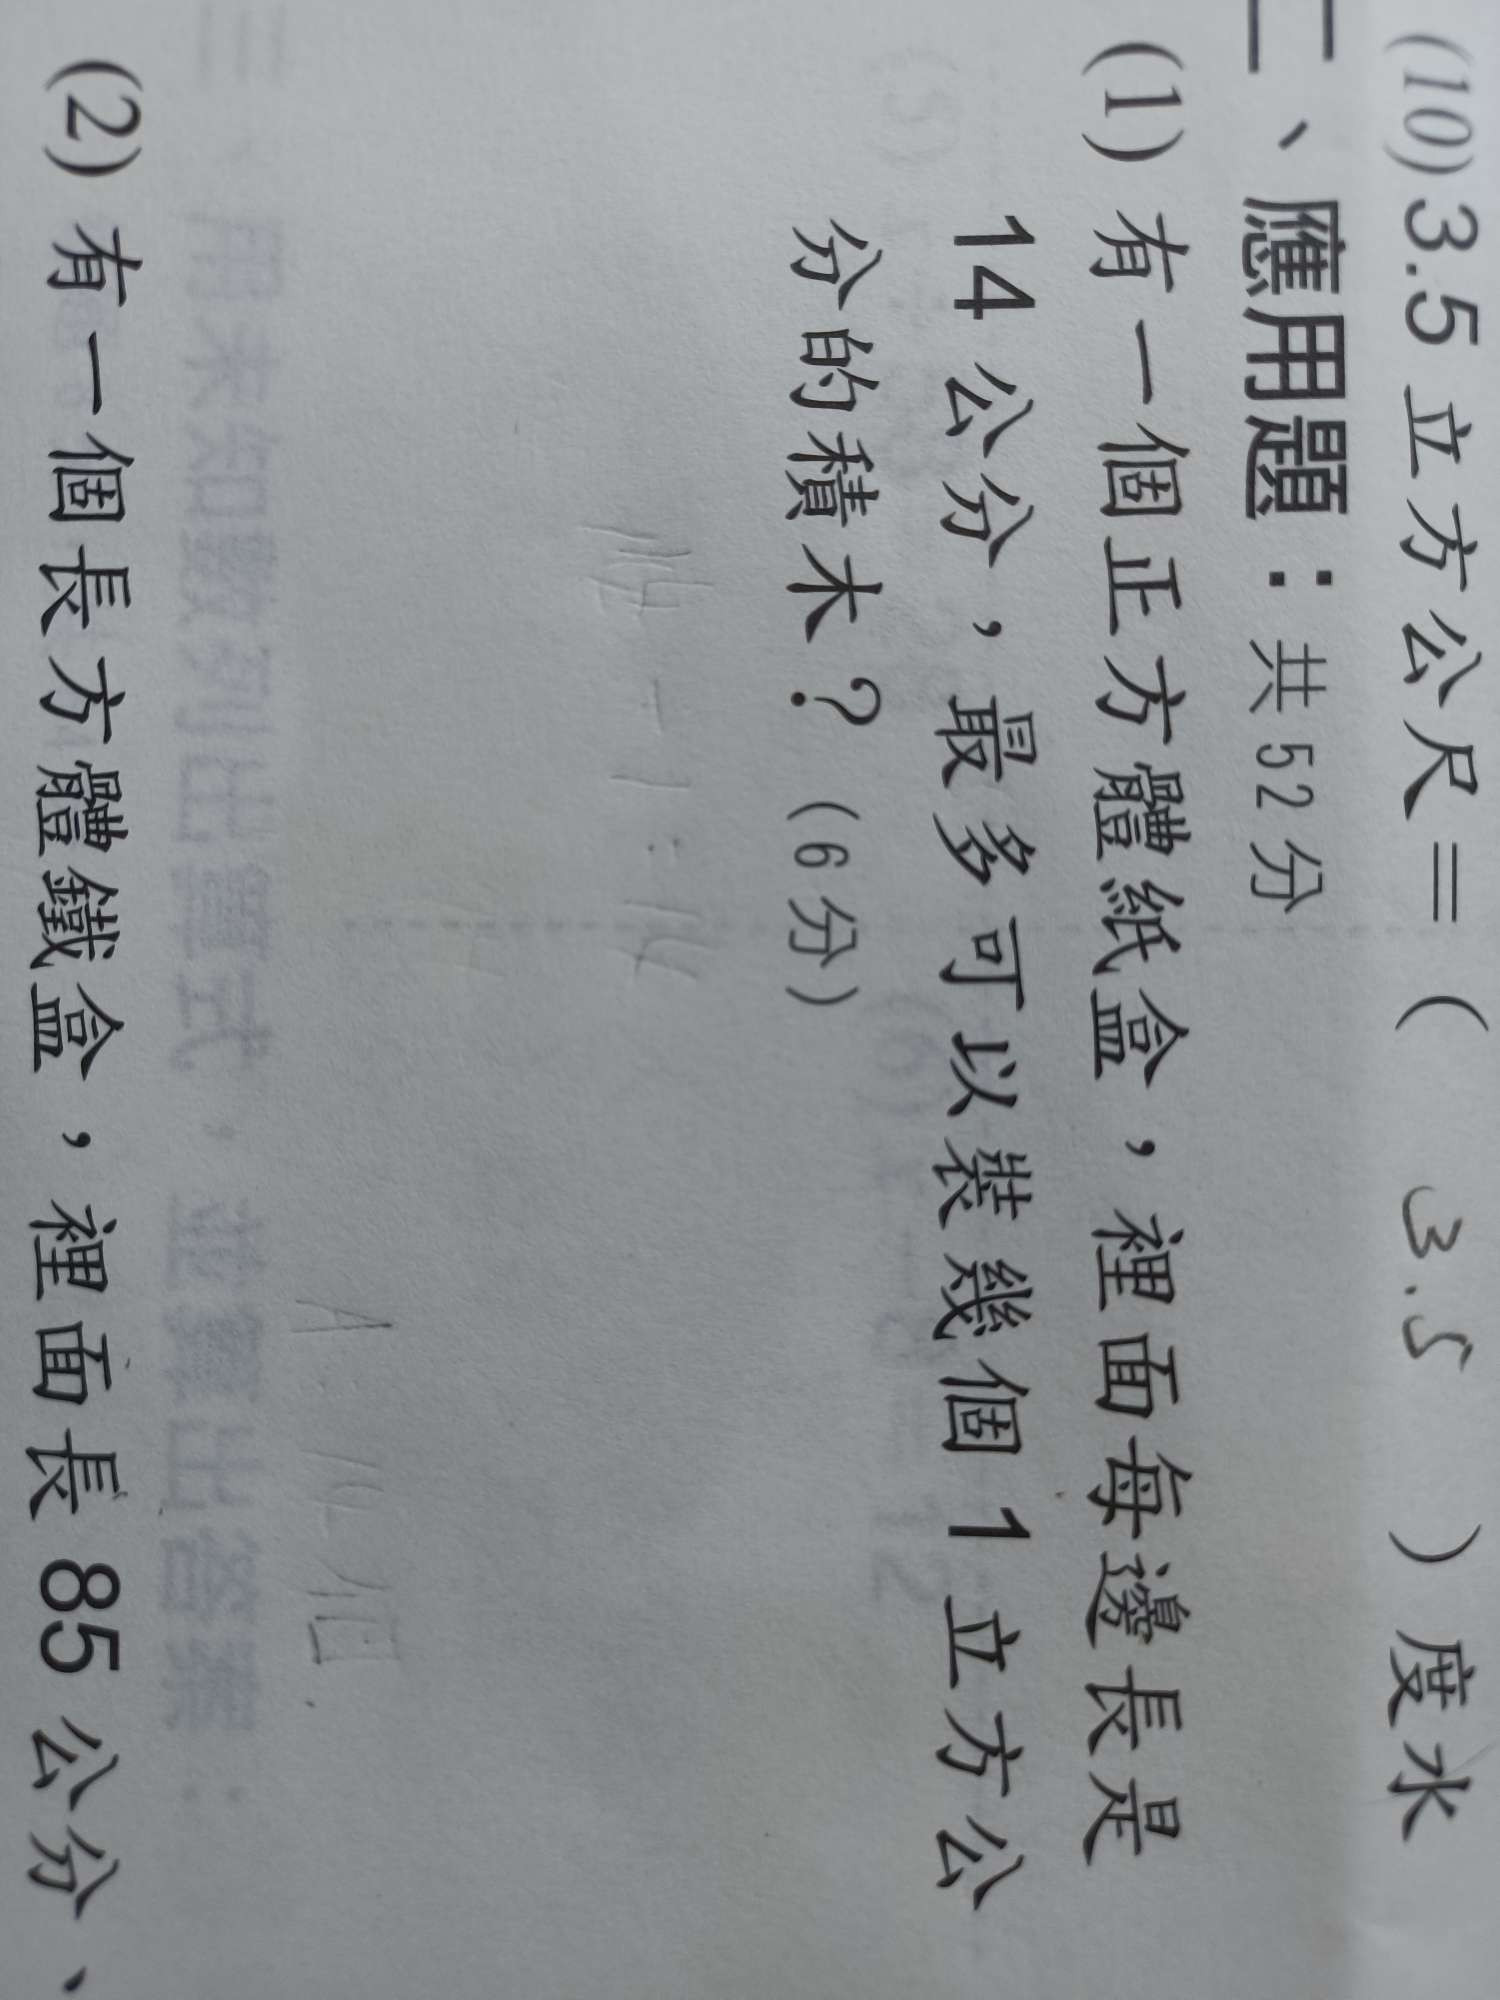 (10) 3.5 立方公尺=( 3.5 )度水
二、應用題：共52分
(1) 有一個正方體紙盒，裡面每邊長是
14 公分，最多可以裝幾個 1 立方公
分的積木？(6分)
14÷1=14
A:14個
(2) 有一個長方體鐵盒，裡面長 85 公分、